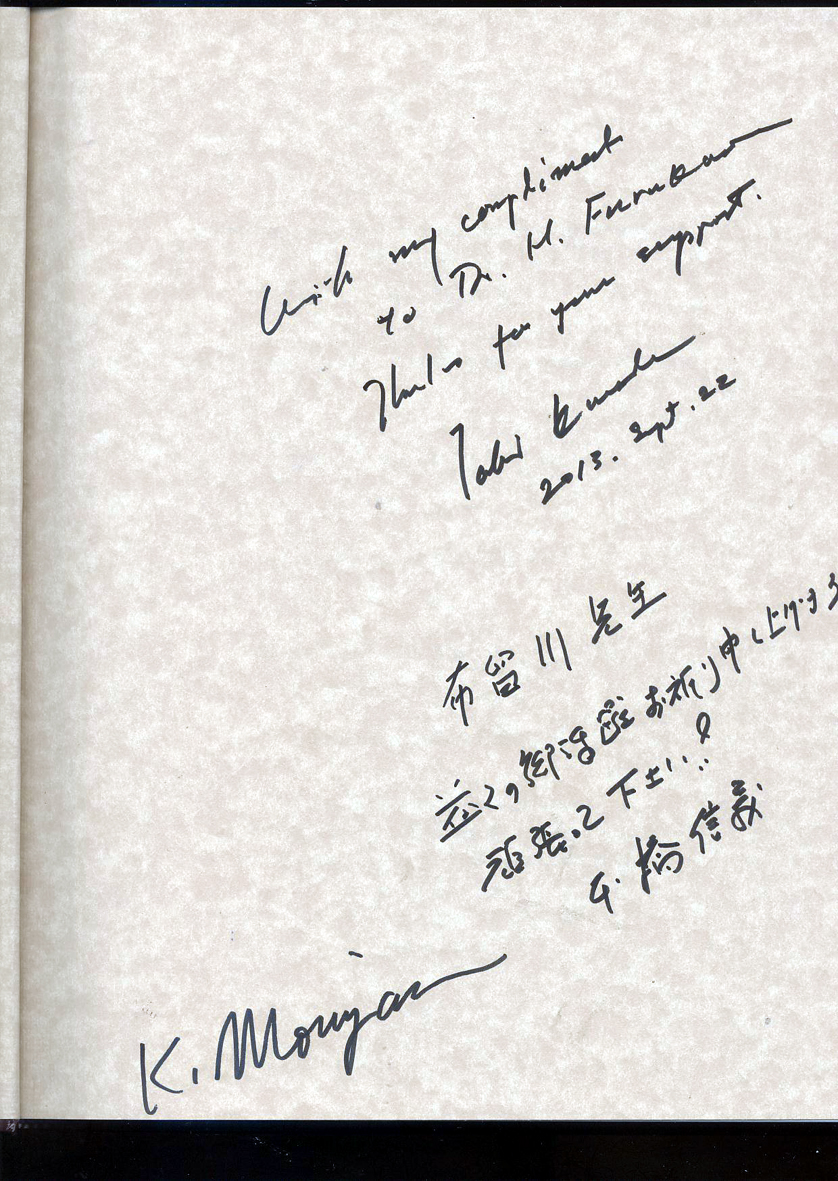 With my compliment
to Dr. H. Furukawa
Thanks for your support.
2013. Sept. 22
布留川先生
益々の御活躍お祈り申し上げます
頑張って下さい!
橋信義
K. Moriyama